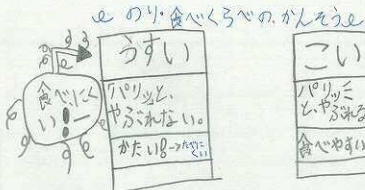 のり・食べくらべの、かんそう
食べにく
い!ー
うすい
パリッと、
やぶれない。
かたい→たべに
くい
こい
パリッと
と、やぶれる
食べやすい